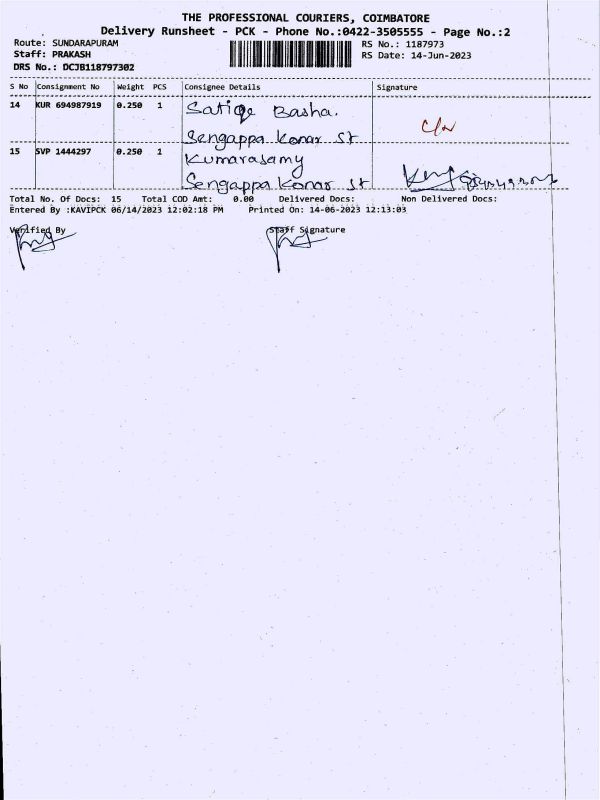 THE PROFESSIONAL COURIERS, COIMBATORE
Delivery Runsheet - PCK - Phone No.:0422-3505555 - Page No.:2
Route: SUNDARAPURAM
RS No.: 1187973
Staff: PRAKASH
RS Date: 14-Jun-2023
DRS No.: DCJB118797302
S No Consignment No Weight PCS Consignee Details Signature
14 KUR 694987919 0.250 1 Satiqe Basha.
Sengappa Konar St
C/N
15 SVP 1444297 0.250 1 Kumarasamy
Sengappa Konar St
Total No. Of Docs: 15 Total COD Amt: 0.00 Delivered Docs: Non Delivered Docs:
Entered By :KAVIPCK 06/14/2023 12:02:18 PM Printed On: 14-06-2023 12:13:03
Verified By Staff Signature